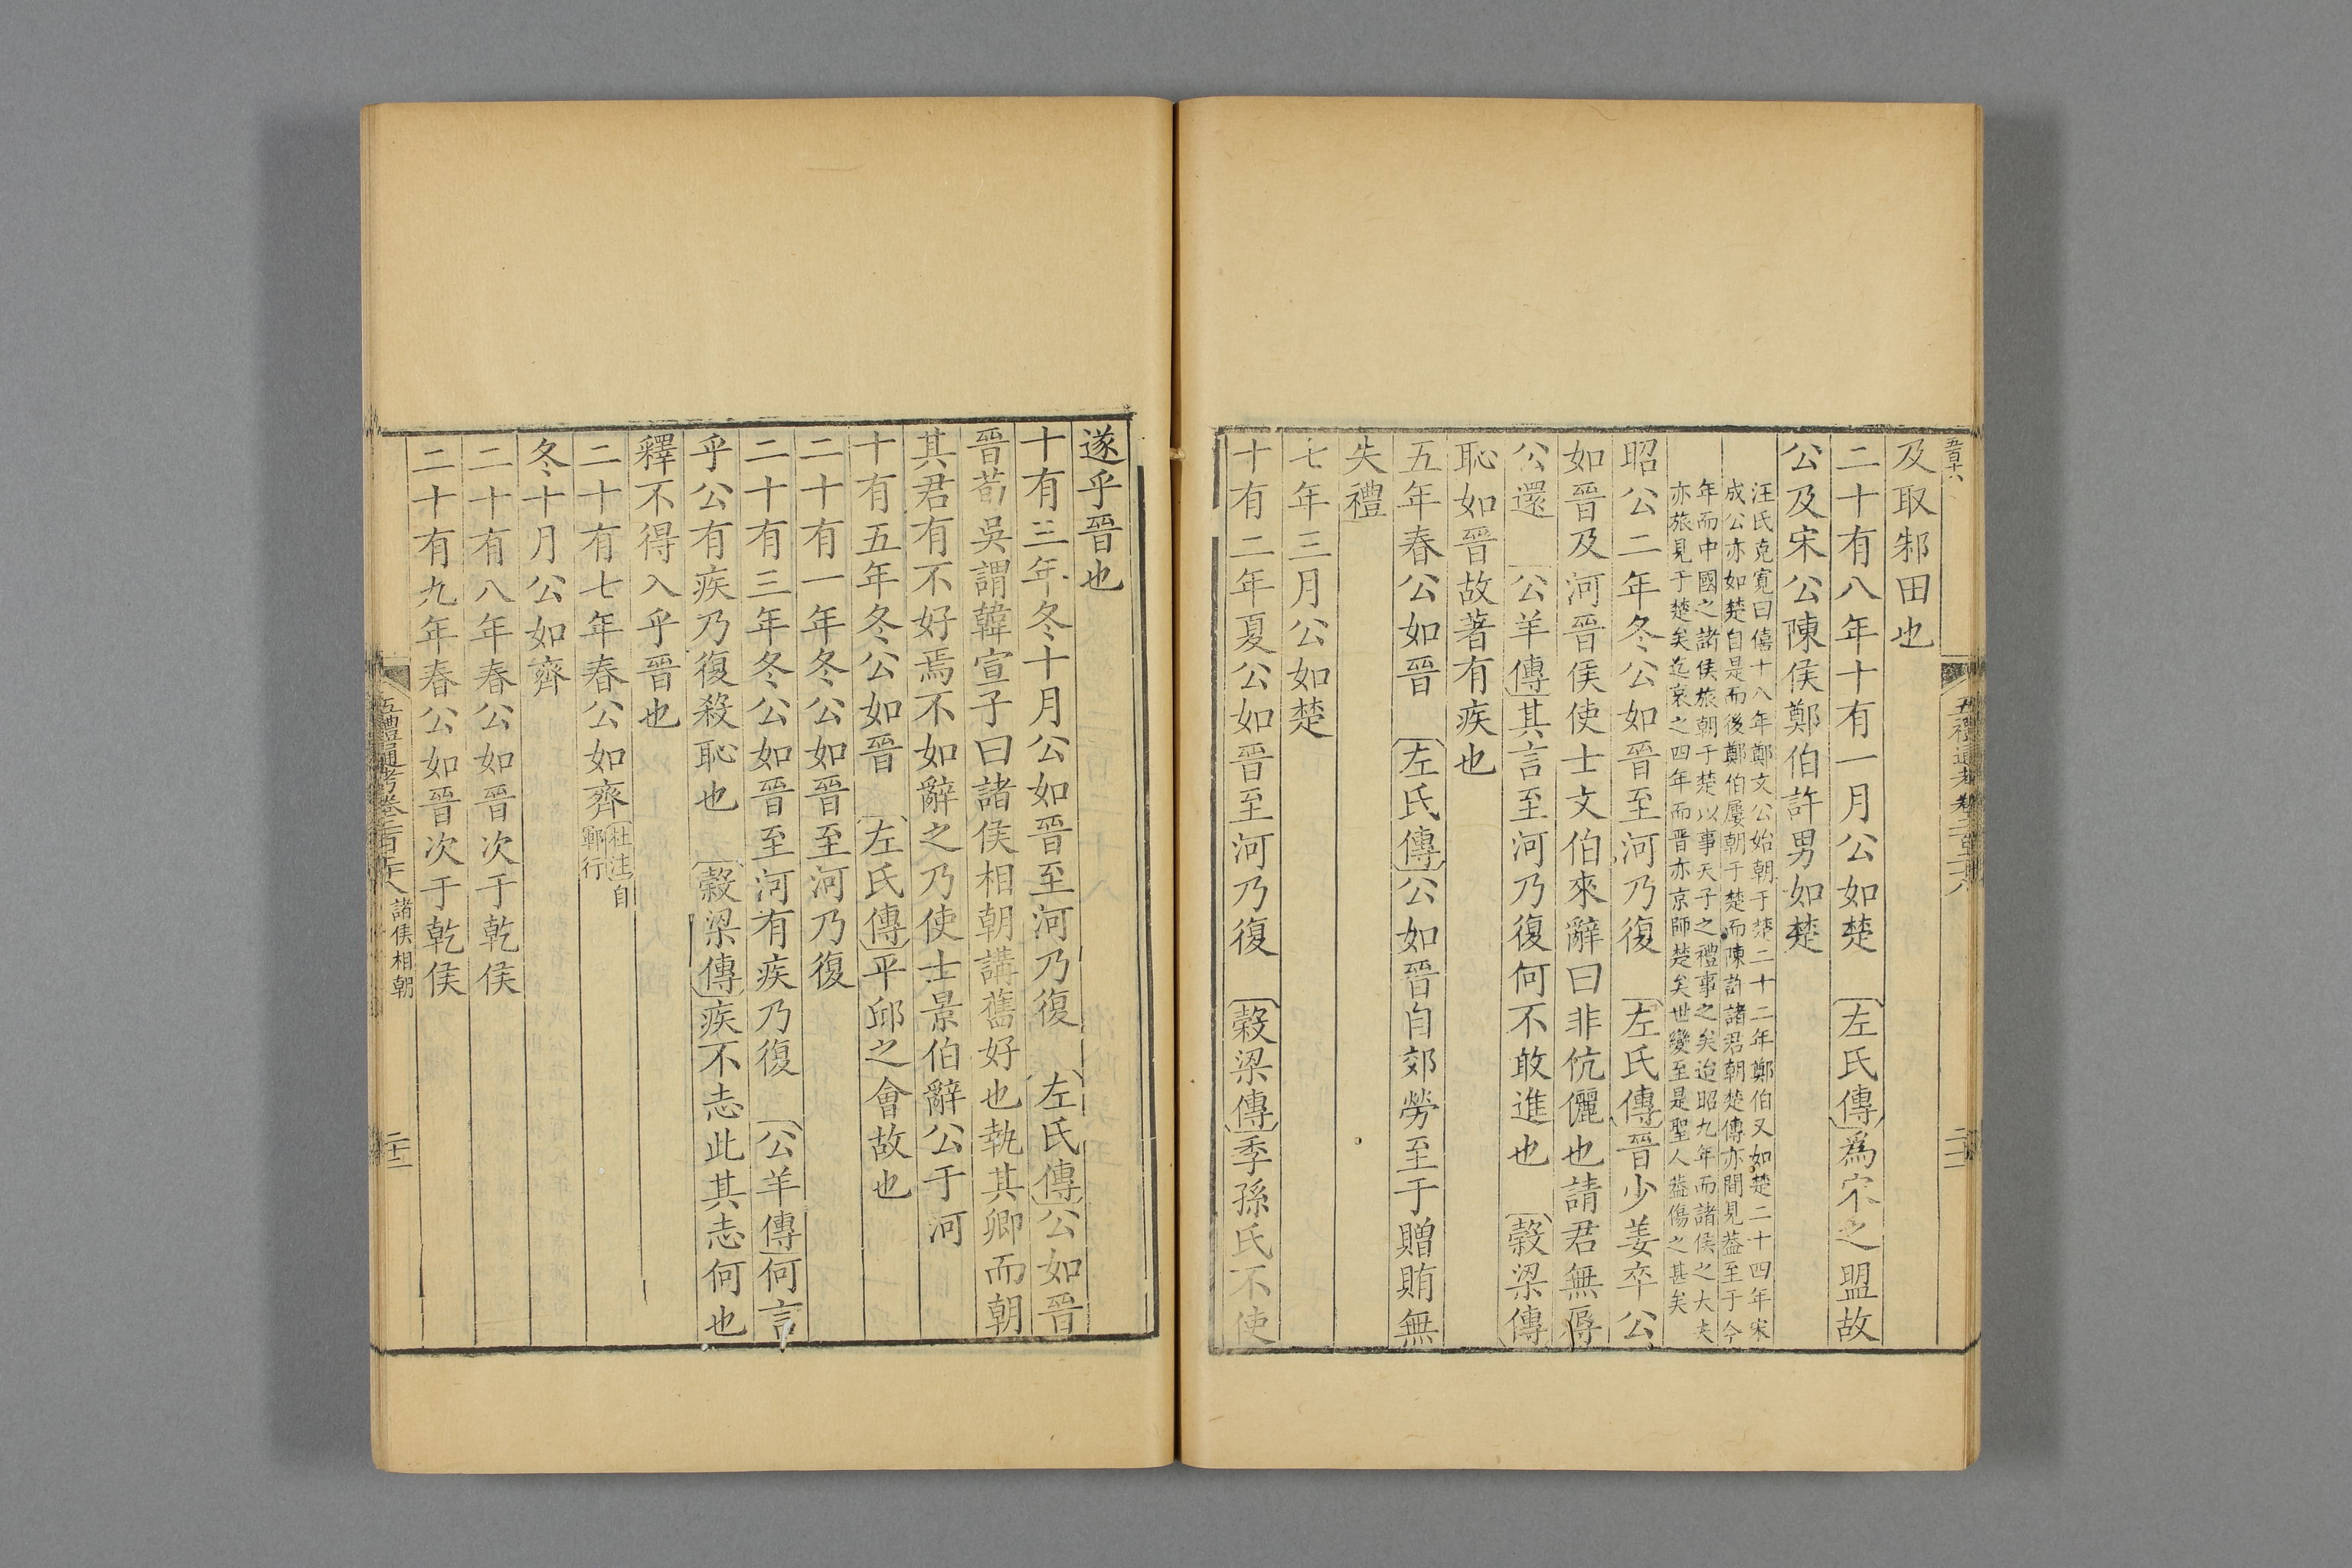 五百十六
五禮通考卷二百二十八
二十一
及取邾田也
二十有八年十有一月公如楚 左氏傳爲宋之盟故
公及宋公陳侯鄭伯許男如楚
汪氏克寬曰僖十八年鄭文公始朝于楚二十二年鄭伯又如楚二十四年宋
成公亦如楚自是而後鄭伯屢朝于楚而陳許諸君朝楚傳亦間見葢至于今
年而中國之諸侯旅朝于楚以事天子之禮事之矣迨昭九年而諸侯之大夫
亦旅見于楚矣迄哀之四年而晋亦京師楚矣世變至是聖人葢傷之甚矣
昭公二年冬公如晉至河乃復 左氏傳晉少姜卒公
如晉及河晉侯使士文伯來辭曰非伉儷也請君無辱
公還 公羊傳其言至河乃復何不敢進也 榖梁傳
恥如晉故著有疾也
五年春公如晉 左氏傳公如晉自郊勞至于贈賄無
失禮
七年三月公如楚
十有二年夏公如晉至河乃復 榖梁傳季孫氏不使
遂乎晉也
十有三年冬十月公如晉至河乃復 左氏傳公如晉
晉荀吳謂韓宣子曰諸侯相朝講舊好也執其卿而朝
其君有不好焉不如辭之乃使士景伯辭公于河
十有五年冬公如晉 左氏傳平邱之會故也
二十有一年冬公如晉至河乃復
二十有三年冬公如晉至河有疾乃復 公羊傳何言
乎公有疾乃復殺恥也 榖梁傳疾不志此其志何也
釋不得入乎晉也
二十有七年春公如齊 杜注自
鄆行
冬十月公如齊
二十有八年春公如晉次于乾侯
二十有九年春公如晉次于乾侯
五禮通考卷二百二十八 諸侯相朝
二十二